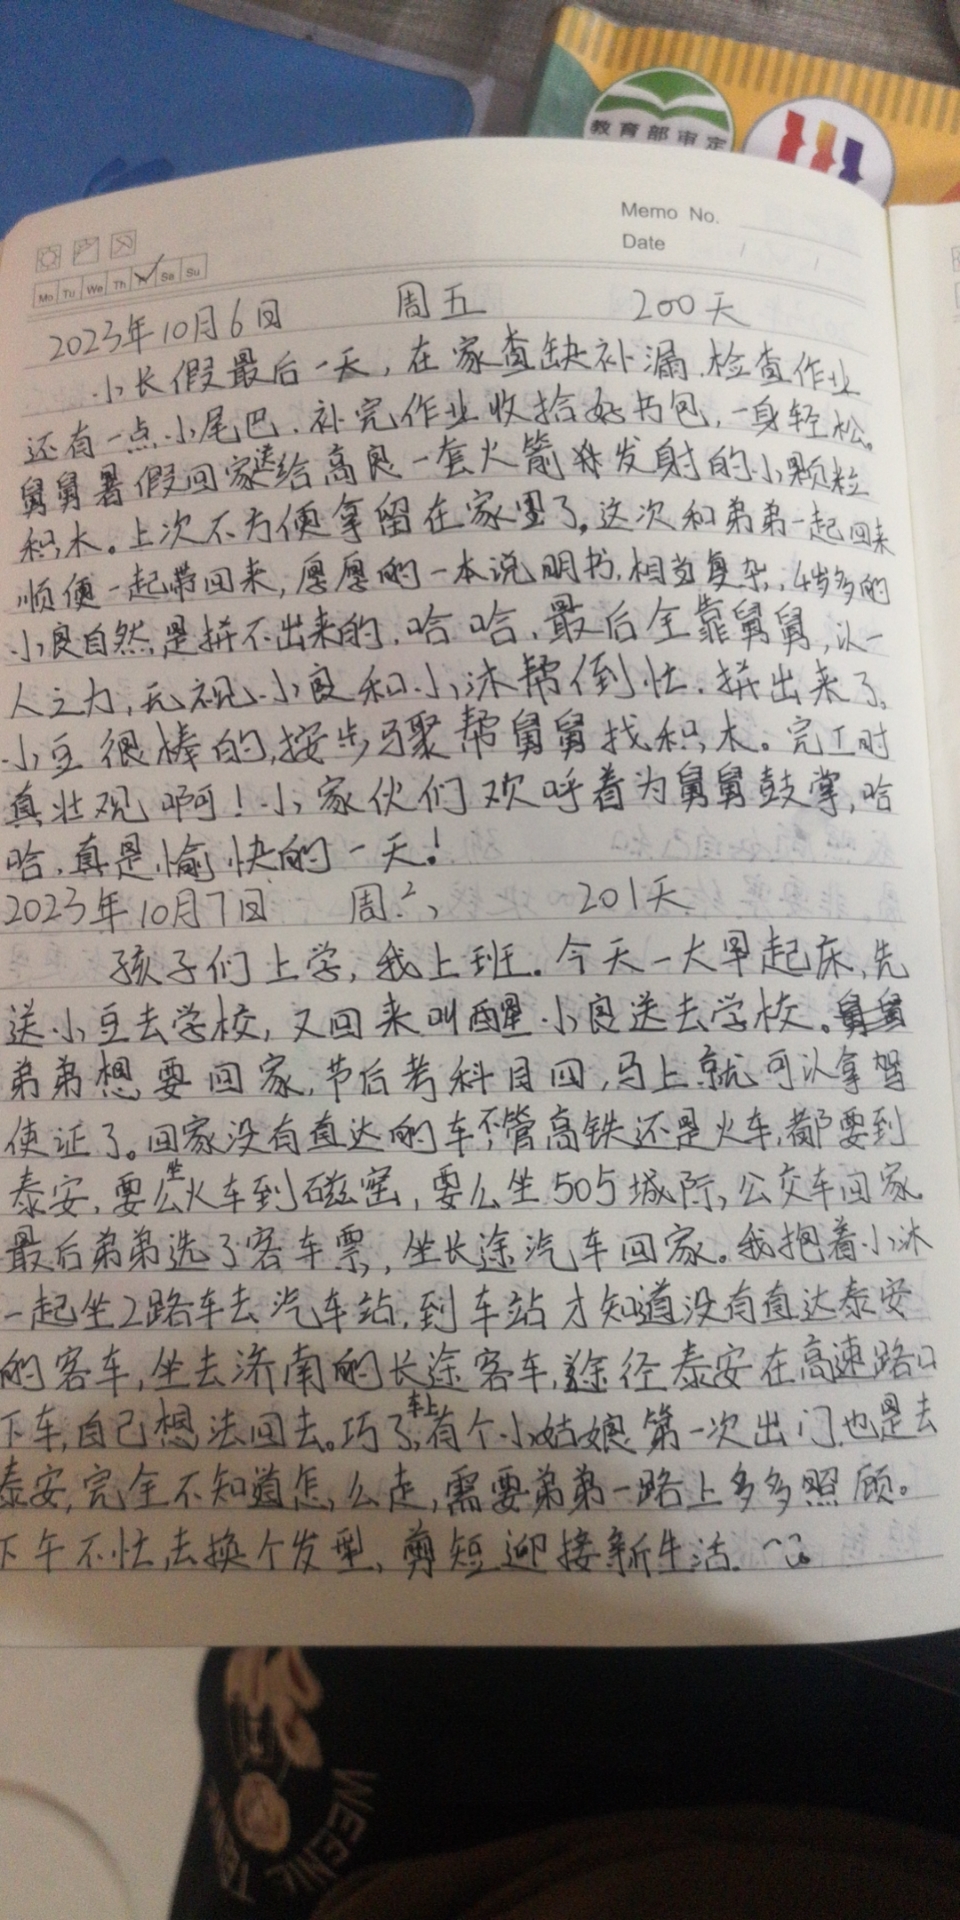 教育部审定
Memo No.
Date
Mo Tu We Th Sa Su
2023年10月6日 周五 200天
小长假最后一天，在家查缺补漏.检查作业
还有一点小尾巴.补完作业收拾好书包，一身轻松。
舅舅暑假回家送给高良一套火箭发射的小颗粒
积木。上次不方便拿留在家里了。这次和弟弟一起回来
顺便一起带回来，厚厚的一本说明书.相当复杂，4岁多的
小良自然是拼不出来的.哈哈.最后全靠舅舅，以一
人之力，无视小良和小沐帮倒忙.拼出来了。
小豆很棒的,按步骤帮舅舅找积木。完工时
真壮观啊！小家伙们欢呼着为舅舅鼓掌，哈
哈.真是愉快的一天！
2023年10月7日 周六 201天
孩子们上学，我上班.今天一大早起床,先
送小豆去学校，又回来叫醒小良送去学校。
弟弟想要回家.节后考科目四，马上就可以拿驾
使证了。回家没有直达的车不管高铁还是火车,都要到
泰安，要么坐火车到磁窑，要么坐505城际，公交车回家。
最后弟弟选了客车票，坐长途汽车回家。我抱着小沐
一起坐2路车去汽车站.到车站才知道没有直达泰安
的客车,坐去济南的长途客车,途径泰安在高速路口
下车,自己想法回去。巧了,车上有个小姑娘第一次出门.也是去
泰安,完全不知道怎么走,需要弟弟一路上多多照顾。
下午不忙,去换个发型,剪短迎接新生活.
WEENIE